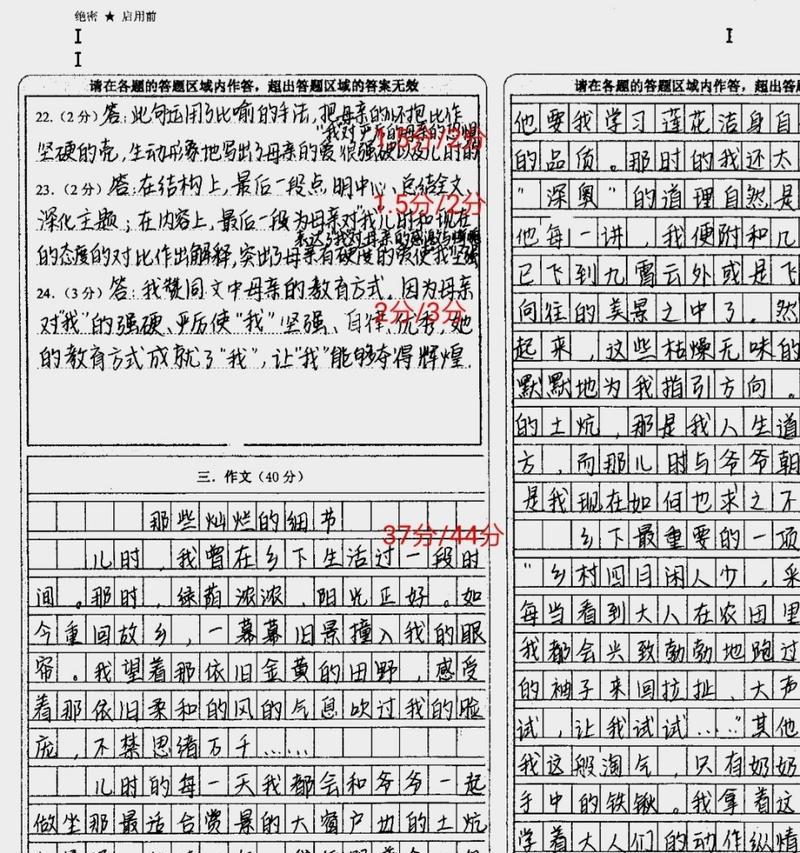 绝密 ★ 启用前
请在各题的答题区域内作答，超出答题区域的答案无效
22.（2分）答：此句运用了比喻的手法，把母亲的怀抱比作
坚硬的壳，生动形象地写出了母亲的爱很强硬以及它的
1.5分/2分
23.（2分）答：在结构上，最后一段点明中心、总结全文、
1.5分/2分
深化主题；在内容上，最后一段为母亲对"我"儿时和现在
的态度的对比作出解释，突出了母亲有硬度的爱使我坚强
24.（3分）答：我赞同文中母亲的教育方式。因为母亲
2分/3分
对"我"的强硬、严厉使"我"坚强、自律、优秀，她
的教育方式成就了"我"，让"我"能够夺得辉煌.
三．作文（40分）
37分/44分
那些灿烂的细节
儿时，我曾在乡下生活过一段时
间。那时，绿荫浓浓，阳光正好。如
今重回故乡，一幕幕旧景撞入我的眼
帘。我望着那依旧金黄的田野，感受
着那依旧柔和的风的气息吹过我的脸
庞，不禁思绪万千……
儿时的每一天我都会和爷爷一起
做坐那最适合赏景的大窗户边的土炕
请在各题的答题区域内作答，超出答题
他要我学习莲花洁身自
的品质。那时的我还太
"深奥"的道理自然是
他每一讲，我便附和几
已飞到九霄云外或是飞
向往的美景之中了。然
起来，这些枯燥无味的
默默地为我指引方向。
的土炕，那是我人生道
方，而那儿时与爷爷朝
是我现在如何也求之不
乡下最重要的一项
"乡村四月闲人少，采
每当看到大人在农田里
我都会兴致勃勃地跑过
的袖子来回拉扯、大声
试，让我试试……"其他
我这般淘气，只有奶奶
手中的铁锹。我拿着这
学着大人们的动作纵情